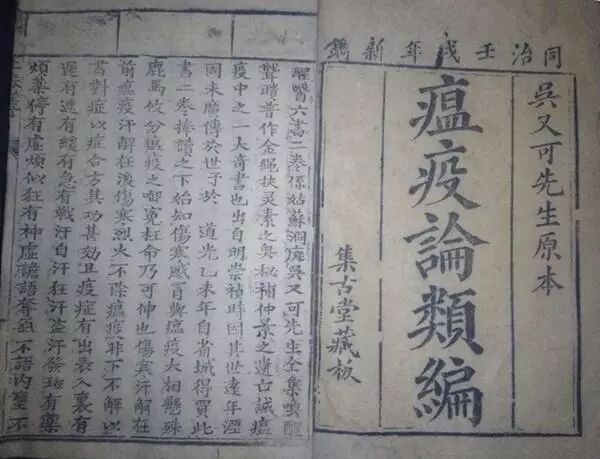 同治壬戌年新鐫
吳又可先生原本
瘟疫論類編
集古堂藏板
醒醫六書二卷係姑蘇洞庭吳又可先生全集喚醒
聾瞶普作金繩扶靈素之奧秘補仲景之遺亡誠瘟
疫中之一大奇書也出自明崇禎時因其世遠年湮
因未廣傳於世予於 道光乙未年自省城得買此
書二卷捧讀之下始知傷寒感冒與瘟疫大相懸殊
鹿馬攸分瘟疫之啣冤枉命乃可伸也傷寒汗解在
前瘟疫汗解在後傷寒烈火不除瘟疫非下不解以
書對症以症合方其功甚効且疫症有出表入裏有
遲有速有緩有急有戰汗自汗狂汗盜汗發斑有藥
煩藥停有虛煩似狂有神虛譫語奪氣不語內壅不